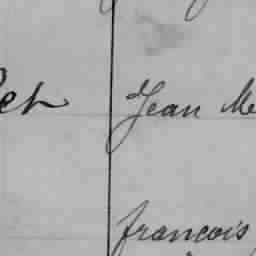 Jean Me
francois